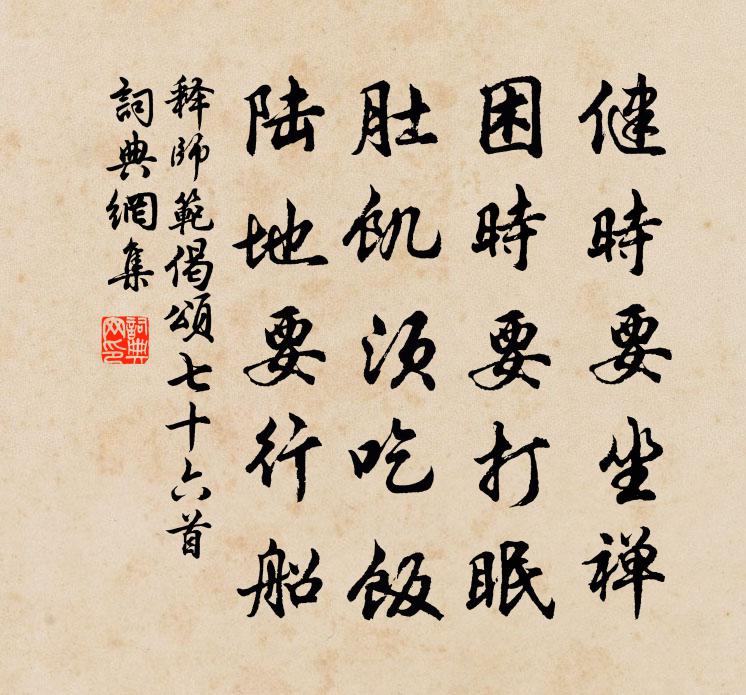 健時要坐禅
困時要打眠
肚飢须吃飯
陆地要行船
释師範偈頌七十六首
詞典網集
詞典网印